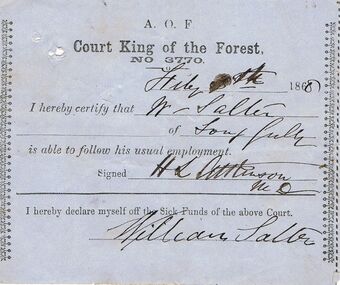 A. O. F
Court King of the Forest,
NO 3770.
Feby 186
I hereby certify that W Salter
of Long Gully
is able to follow his usual employment.
Signed H L Atkinson
M D
I hereby declare myself off the Sick Funds of the above Court.
William Salter